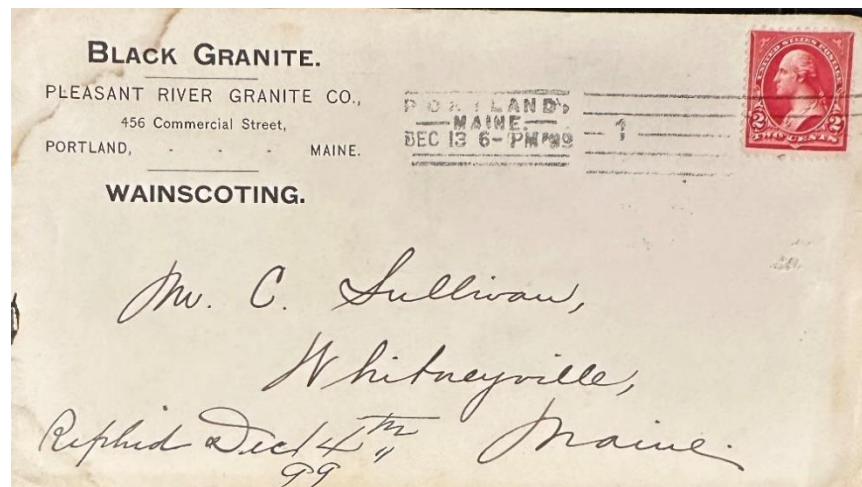 BLACK GRANITE.
PLEASANT RIVER GRANITE CO.,
456 Commercial Street,
PORTLAND, - - - MAINE.
WAINSCOTING.
PORTLAND,
MAINE.
DEC 13 6-PM '99
1
UNITED STATES POSTAGE
2 2
TWO CENTS
Mr. C. Sullivan,
Whitneyville,
Maine.
Replied Dec 14th
99